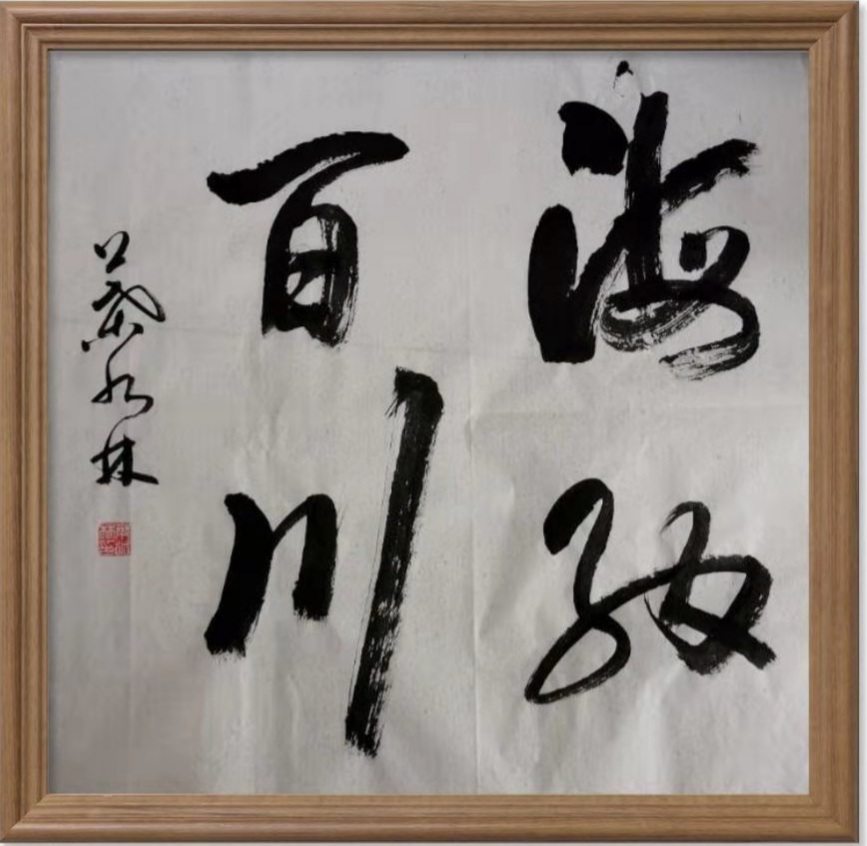 海纳
百川
林